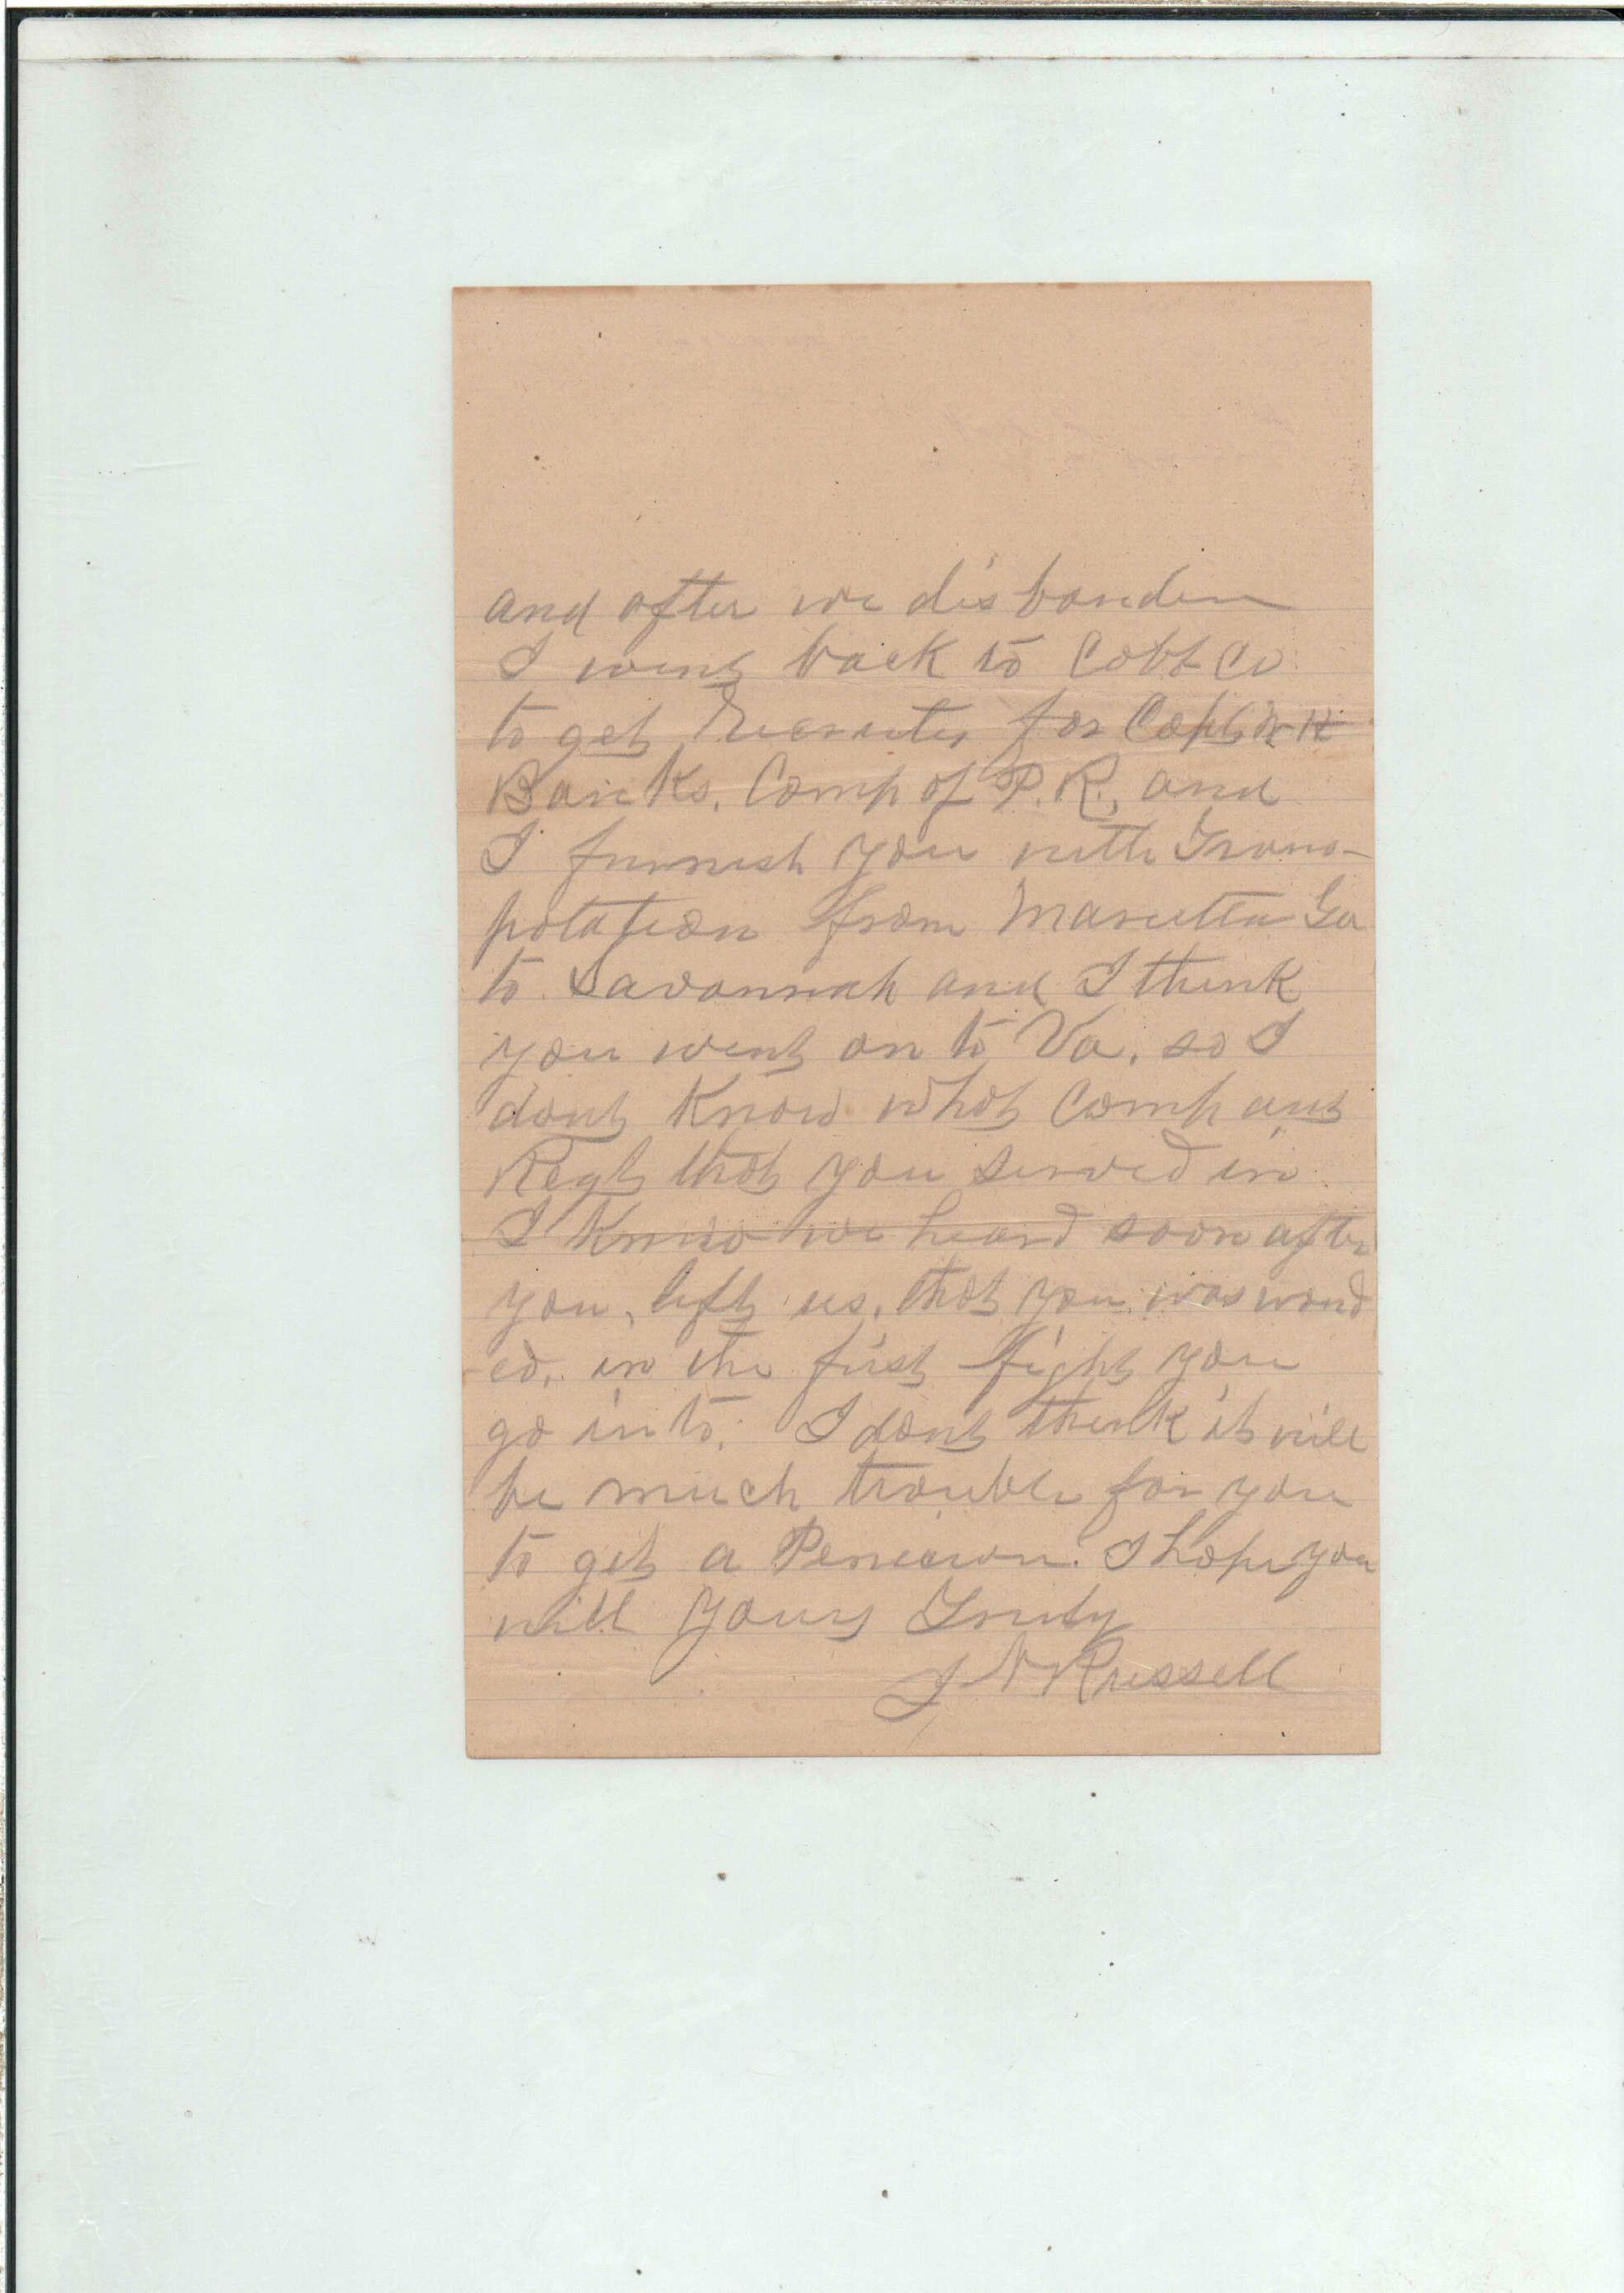 and after we disbanden
I went back to Cobb Co
to get Recruits for Capt W R
Banks. Comp of P. R., and
I furnish you with Trans-
potation from Marietta Ga
to Savannah and I think
you went on to Va. so I
dont Know what Comp and
Regt that you served in
I Know we heard soon after
you, left us, that you was wound
ed, in the first fight you
go into. I dont think it will
be much trouble for you
to get a Pencion. I hope you
will yours Truly
J N Russell